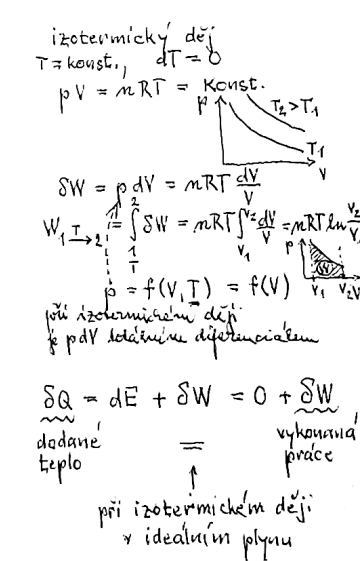 izotermický děj
T = konst., dT = 0
pV = nRT = konst.
p T₂ > T₁
T₁
V
δW = p dV = nRT dV/V
W₁ →T 2 = ∫₁²T δW = nRT ∫V₁V₂ dV/V = nRT ln V₂/V₁
p W V₁ V₂ V
p = f(V, T) = f(V)
při izotermickém ději
je pdV totálním diferenciálem
δQ = dE + δW = 0 + δW
dodané vykonaná
teplo práce
při izotermickém ději
v ideálním plynu